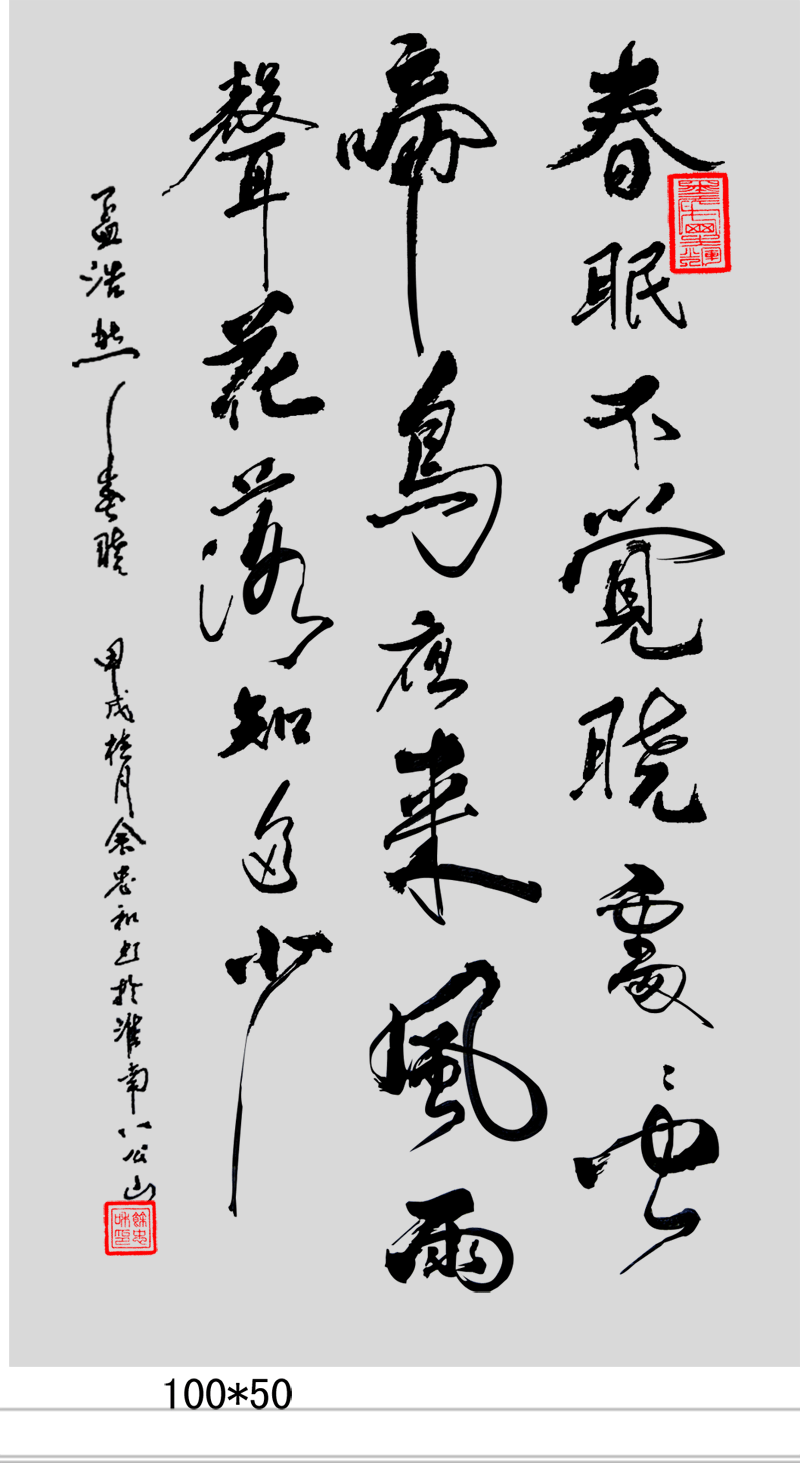 春眠不覺晓處々聞
啼鳥夜来風雨
聲花落知多少
孟浩然 春晓 甲戌桂月余忠和书於淮南八公山
餘忠和印
100*50